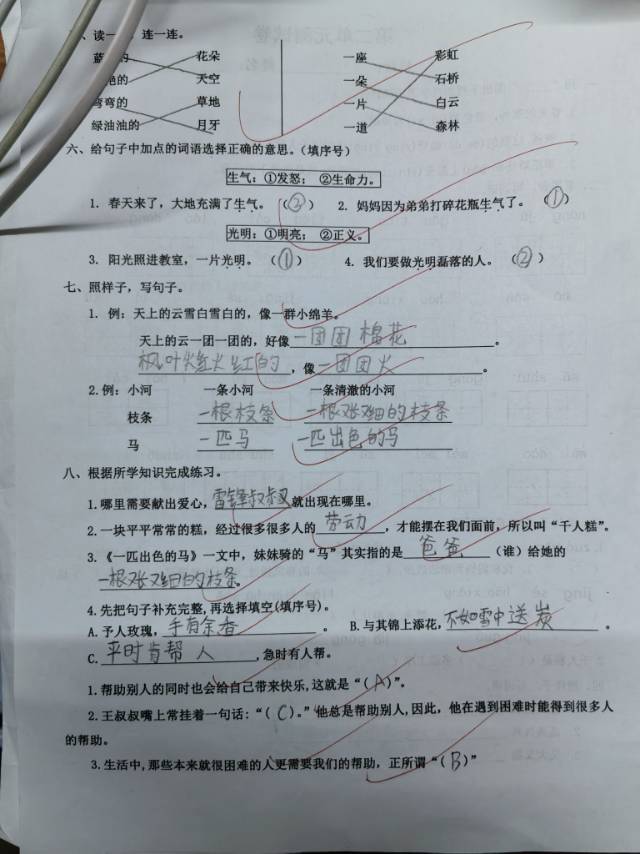 、读一 、连一连。
蓝 的 花朵 一座 彩虹
艳的 天空 一朵 石桥
弯弯的 草地 一片 白云
绿油油的 月牙 一道 森林
六、给句子中加点的词语选择正确的意思。(填序号)
生气:①发怒; ②生命力。
1. 春天来了,大地充满了生气。(②) 2. 妈妈因为弟弟打碎花瓶生气了。(①)
光明:①明亮; ②正义。
3. 阳光照进教室,一片光明。(①) 4. 我们要做光明磊落的人。(②)
七、照样子,写句子。
1. 例:天上的云雪白雪白的,像一群小绵羊。
天上的云一团一团的,好像一团团棉花。
枫叶火红火红的,像一团团火。
2. 例:小河 一条小河 一条清澈的小河
枝条 一根枝条 一根细细的枝条
马 一匹马 一匹出色的马
八、根据所学知识完成练习。
1.哪里需要献出爱心,雷锋叔叔就出现在哪里。
2.一块平平常常的糕,经过很多很多人的劳动,才能摆在我们面前,所以叫“千人糕”。
3.《一匹出色的马》一文中,妹妹骑的“马”其实指的是爸爸(谁)给她的
一根 细的枝条。
4.先把句子补充完整,再选择填空(填序号)。
A.予人玫瑰,手有余香。 B.与其锦上添花,不如雪中送炭。
C.平时肯帮人,急时有人帮。
1.帮助别人的同时也会给自己带来快乐,这就是“(A)”。
2.王叔叔嘴上常挂着一句话:“(C)。”他总是帮助别人,因此,他在遇到困难时能得到很多人
的帮助。
3.生活中,那些本来就很困难的人更需要我们的帮助,正所谓“(B)”